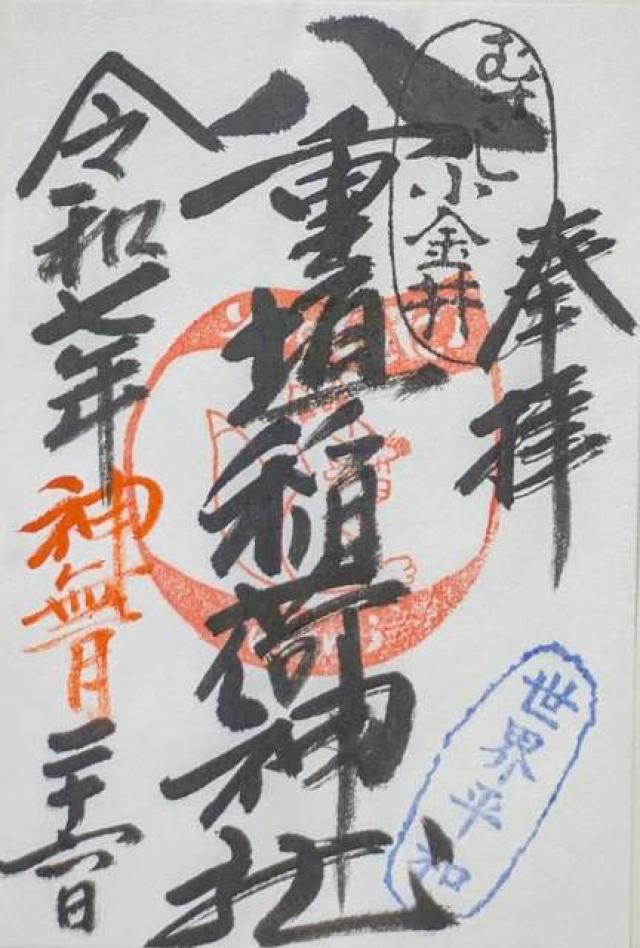 奉拝
むさし小金井
八重垣稲荷神社
令和七年神無月二十六日
世界平和